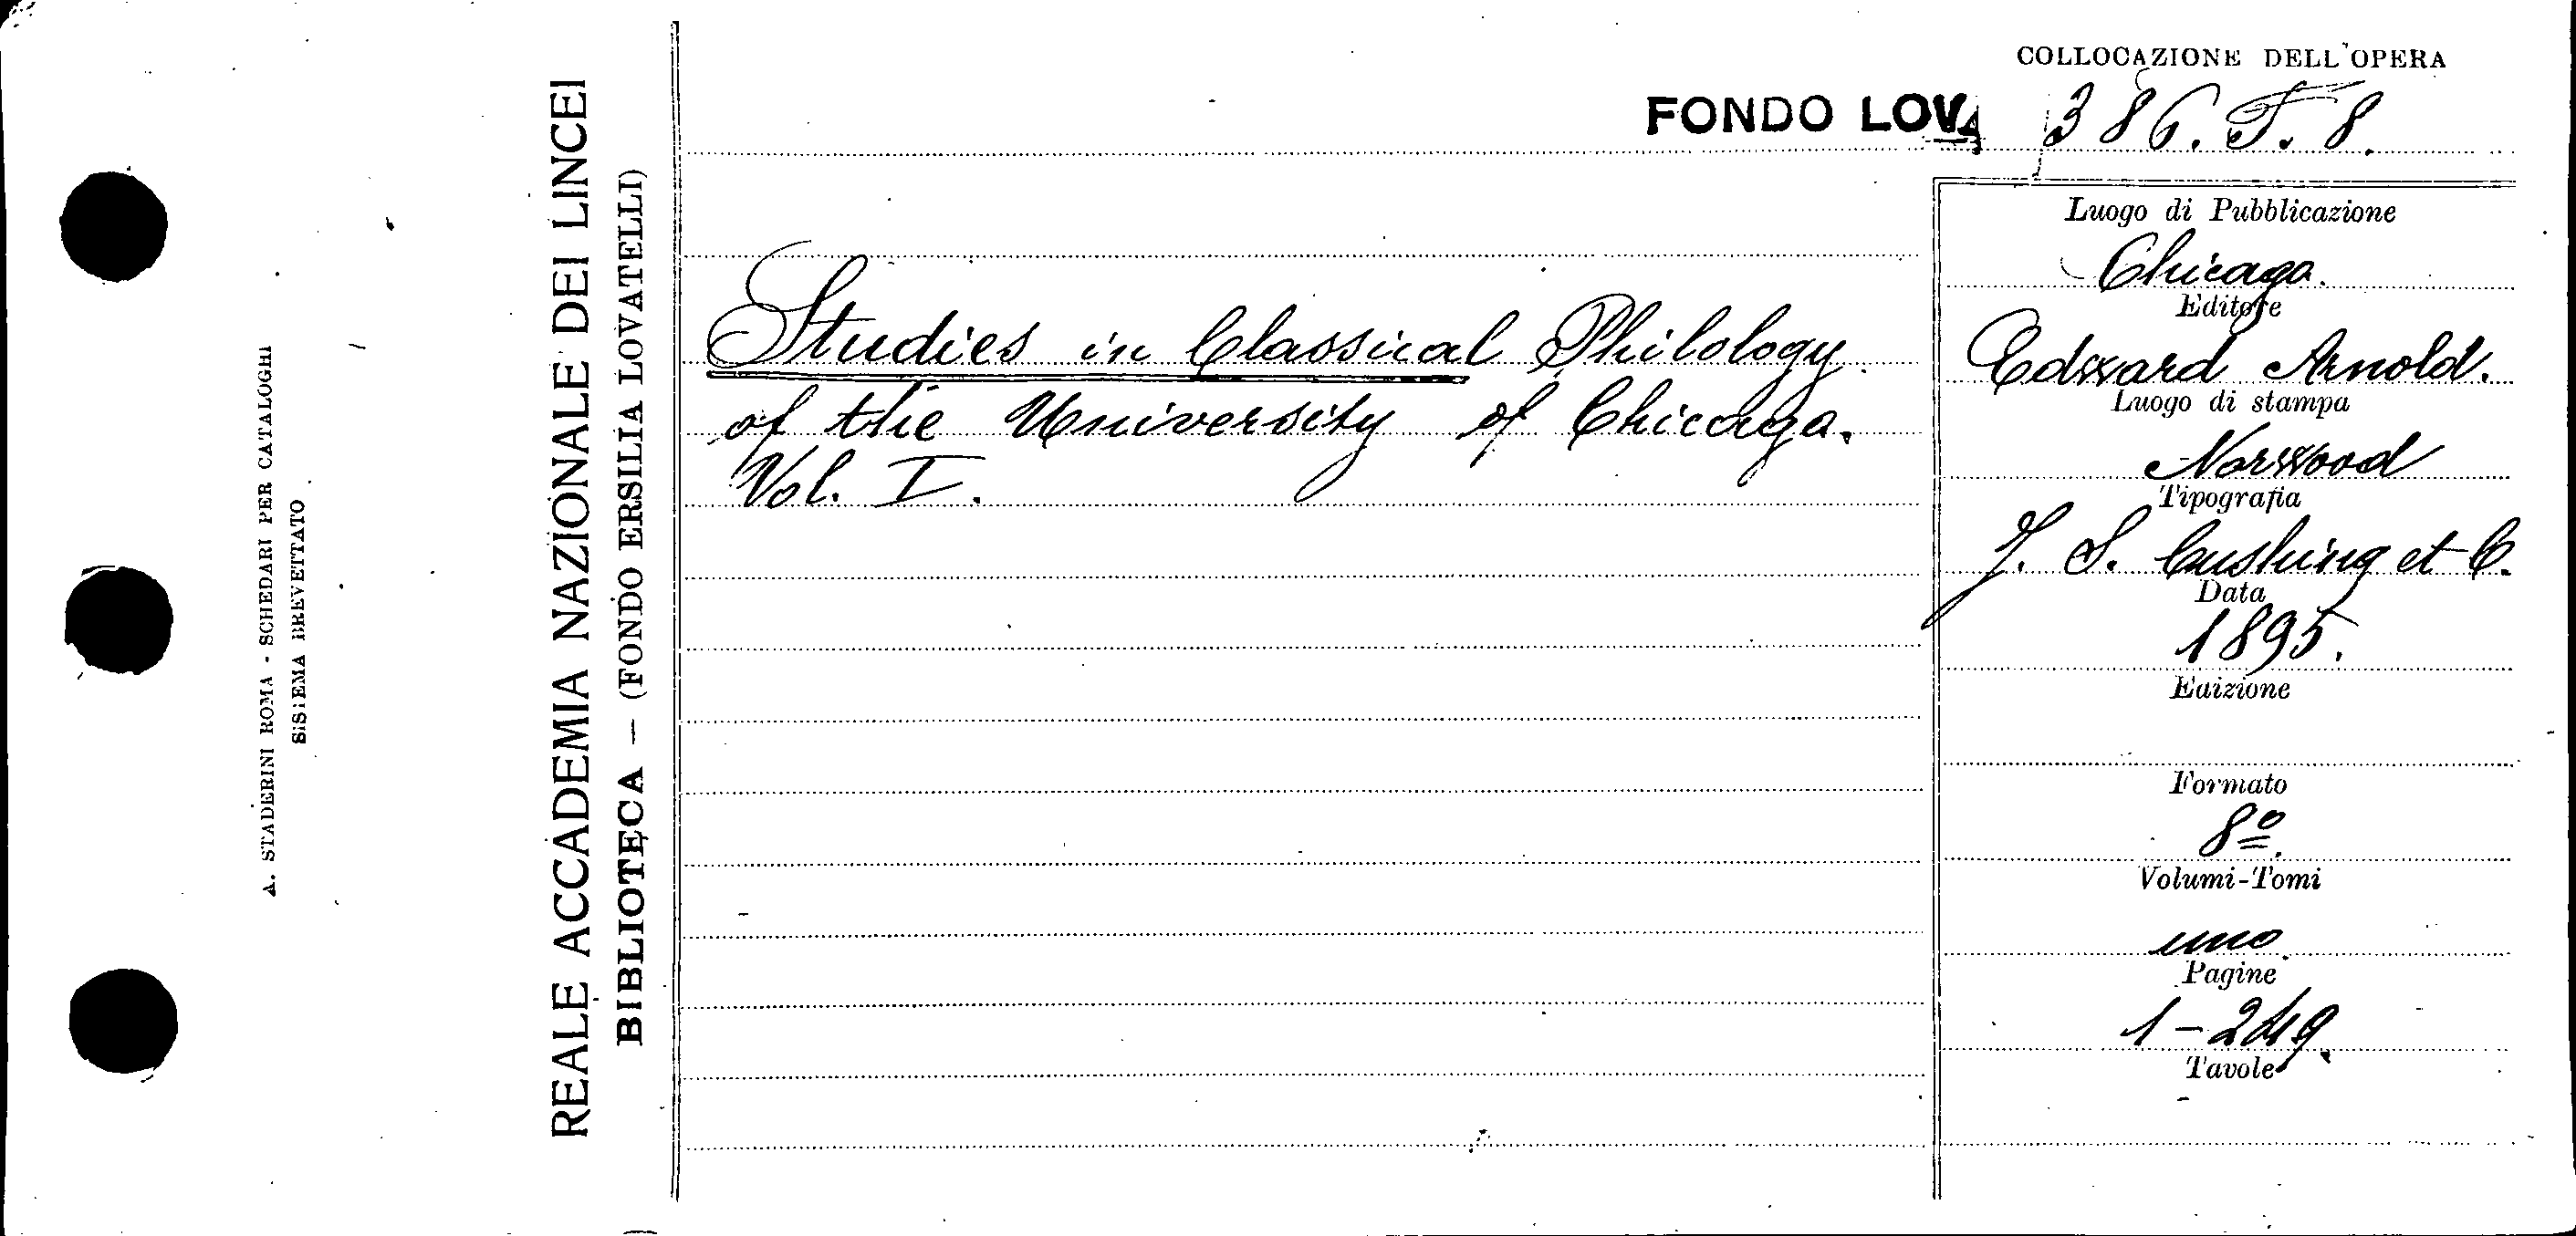 COLLOCAZIONE DELL'OPERA
FONDO LOV. 386. F. 8.
A. STADERINI ROMA - SCHEDARI PER CATALOGHI
SISTEMA BREVETTATO
REALE ACCADEMIA NAZIONALE DEI LINCEI
BIBLIOTECA — (FONDO ERSILIA LOVATELLI)
Studies in Classical Philology
of the University of Chicago.
Vol. I.
Luogo di Pubblicazione
Chicago.
Editore
Edward Arnold.
Luogo di stampa
Norwood
Tipografia
J. S. Cushing et C.
Data
1895.
Edizione
Formato
8º.
Volumi-Tomi
uno.
Pagine
1-249.
Tavole